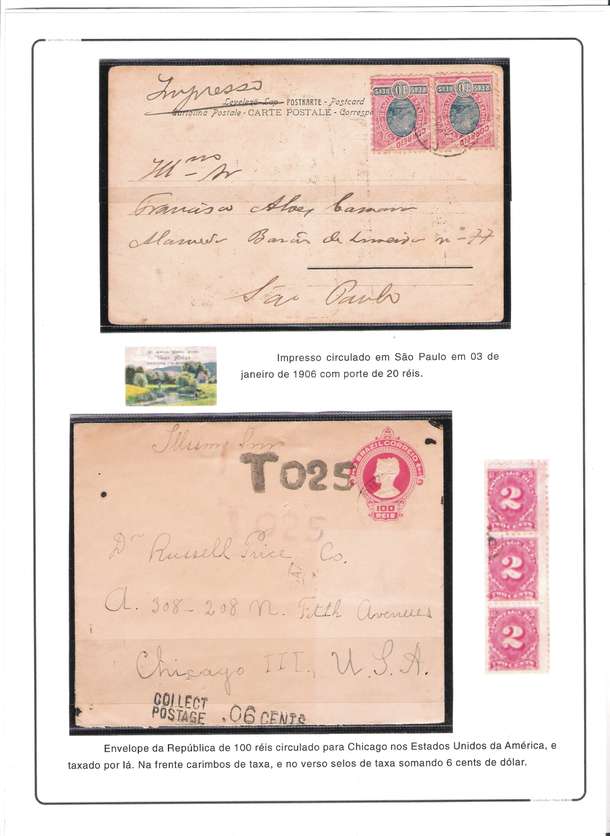 Impresso
Levelező-Lap – POSTKARTE – Postcard
Cartolina Postale – CARTE POSTALE – Corresp
REIS 10 REIS
REIS 10 REIS
CORREIO
CORREIO
Mmo Sr
Francisco Alves
Alameda Barão de Limeira n-77
São Paulo
Impresso circulado em São Paulo em 03 de
janeiro de 1906 com porte de 20 réis.
T025
BRAZIL CORREIO
100
REIS
T025
Dr Russell Price Co.
A. 308-208 N. Fifth Avenues
Chicago III, U.S.A.
COLLECT
POSTAGE .06 CENTS
2
TWO CENTS
2
TWO CENTS
2
TWO CENTS
Envelope da República de 100 réis circulado para Chicago nos Estados Unidos da América, e
taxado por lá. Na frente carimbos de taxa, e no verso selos de taxa somando 6 cents de dólar.